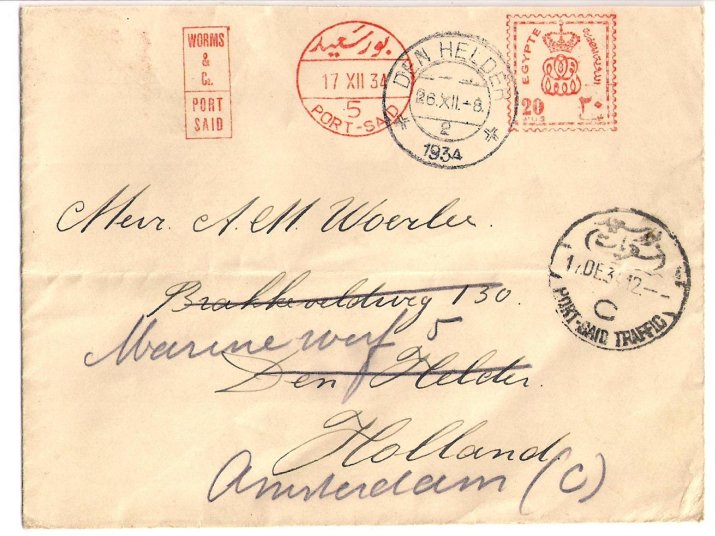 WORMS
&
Co.
PORT
SAID
بور سعيد
17 XII 34
5
PORT-SAID
DEN HELDER
26.XII.-8.
2
1934
EGYPTE
20
٢٠
Mevr. A. M. Woerlee.
Brakkeveldweg 130.
Marinewerf 5
Den Helder.
Holland
Amsterdam (C)
17 DE 34 12-
C
PORT-SAID TRAFFIC